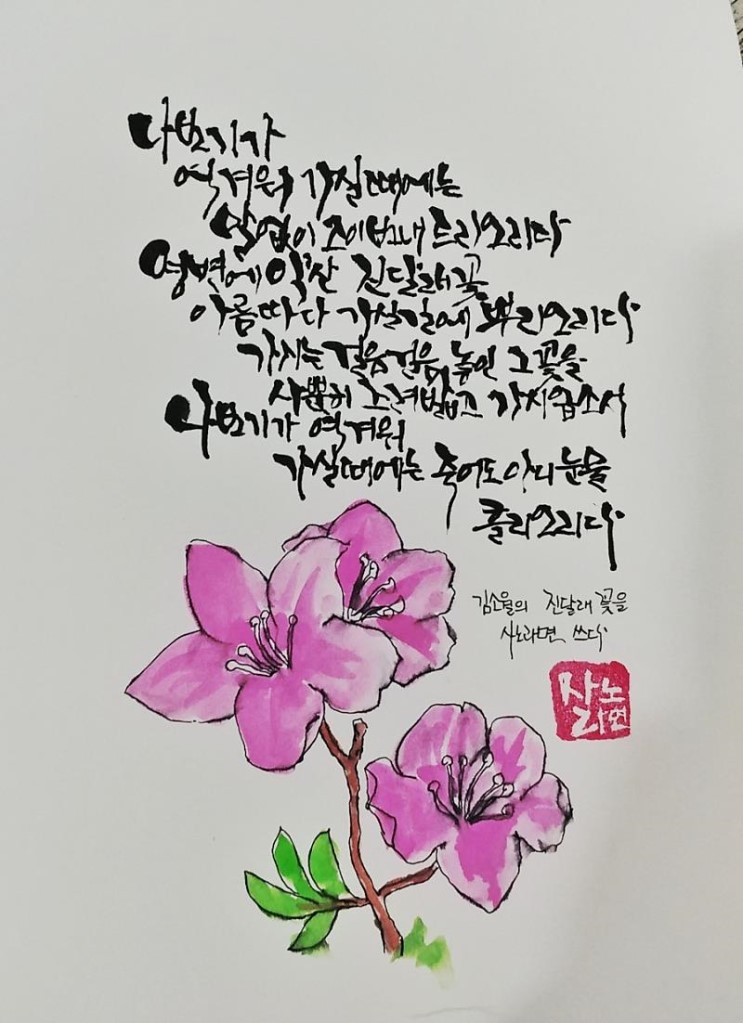 나보기가
역겨워 가실때에는
말없이 고이보내 드리오리다
영변에 약산 진달래꽃
아름따다 가실길에 뿌리오리다
가시는 걸음걸음 놓인 그꽃을
사뿐히 즈려밟고 가시옵소서
나보기가 역겨워
가실때에는 죽어도 아니 눈물
흘리오리다
김소월의 진달래꽃을
사노라면 쓰다
사노
라면